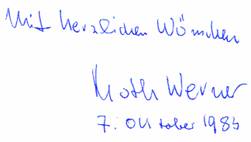 Mit herzlichen Wünschen
Roth Werner
7. Oktober 1985